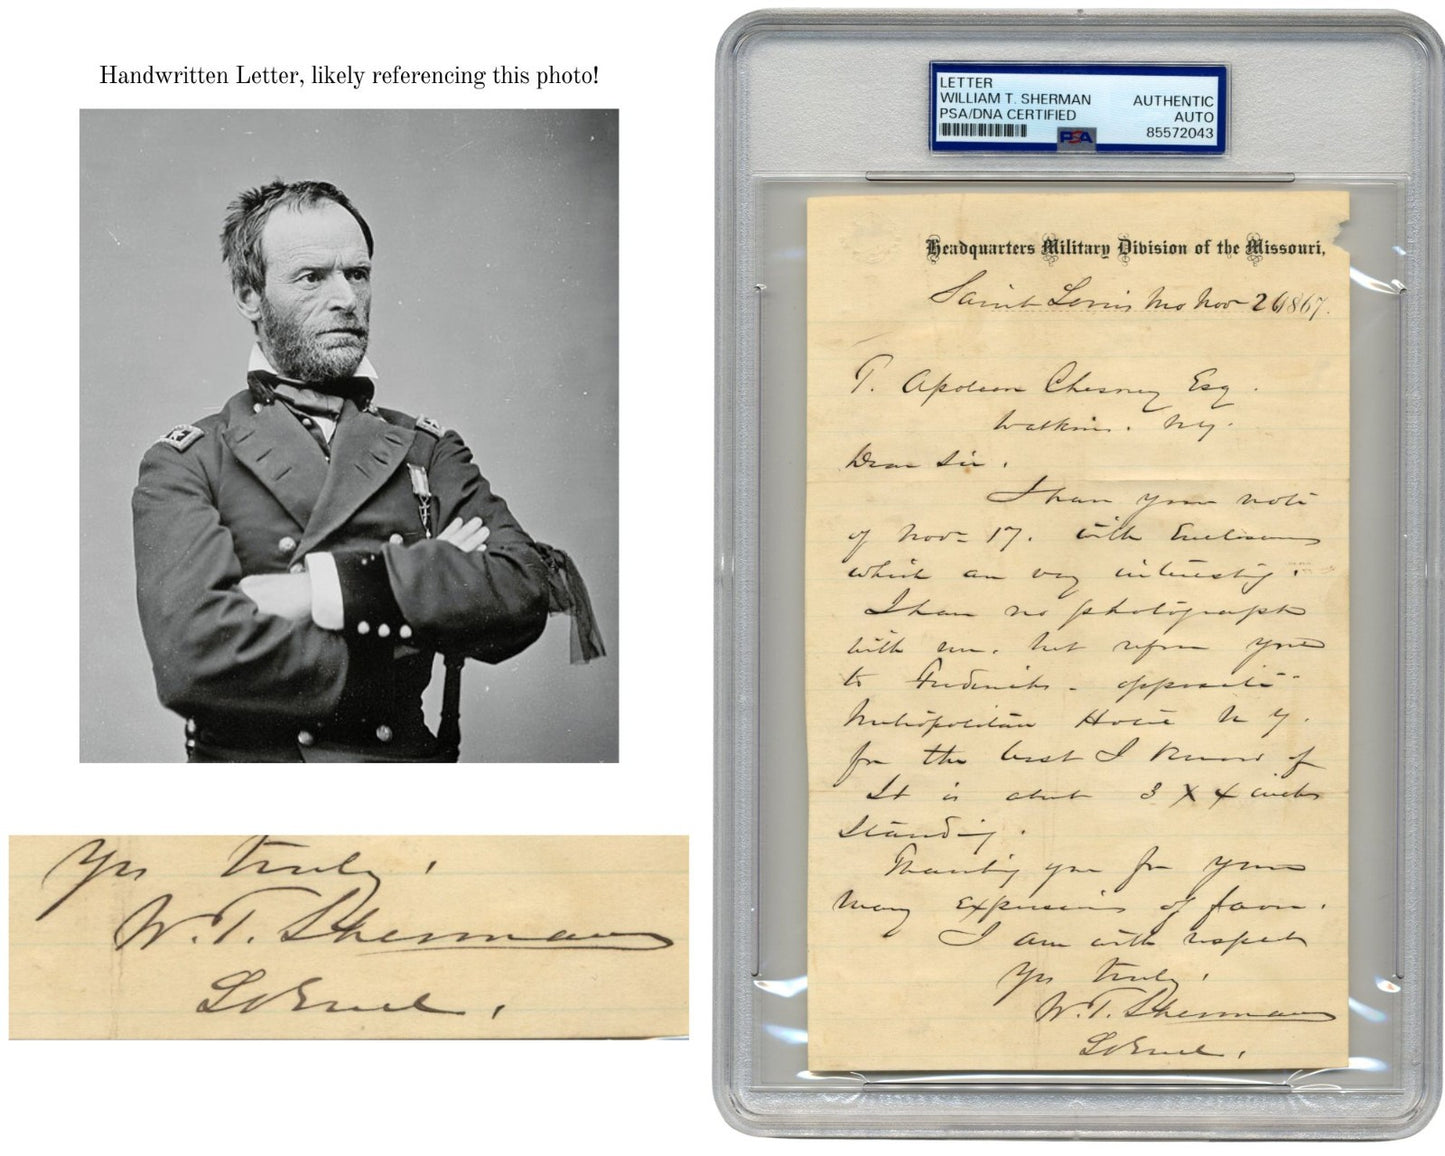 Handwritten Letter, likely referencing this photo!
LETTER
WILLIAM T. SHERMAN
PSA/DNA CERTIFIED
AUTHENTIC
AUTO
85572043
PSA
Headquarters Military Division of the Missouri,
Saint Louis Mo Nov 26 1867.
T. Apoleon Chesney Esq.
Watkins. N.Y.
Dear Sir.
I have your note
of Nov 17. with Enclosures
which are very interesting.
I have no photograph
with me. but refer you
to Fredericks - opposite
Metropolitan Hotel N Y.
for the best I know of
It is about 3 X 4 inches
Standing.
Thanking you for your
many expressions of favor.
I am with respect
Yrs truly,
W. T. Sherman
Lt Genl.
Yrs truly,
W. T. Sherman
Lt Genl.